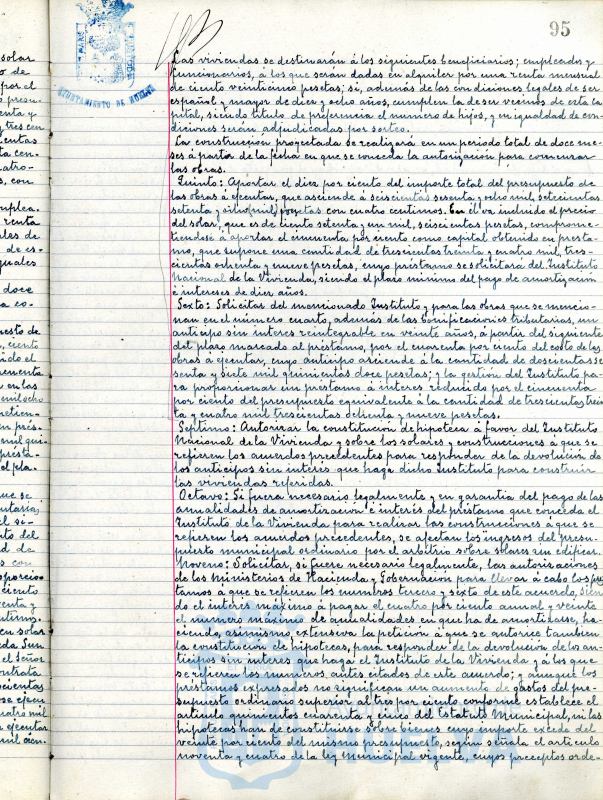 95
AYUNTAMIENTO DE HUELVA
solar
o de
por el
y tres con
con
renta
les de
de es-
quales
doce
a co-
uesto de
ciento
ido el
en las
mil ocho
en prés-
mil qui-
el pla-
que se
el si-
to del
d de
ciento
y
en solar
el señor
contrata
ejecutar
Las viviendas se destinarán á los siguientes beneficiarios; empleados y
funcionarios, á los que serán dadas en alquiler por una renta mensual
de ciento veinticinco pesetas; si, además de las condiciones legales de ser
español y mayor de diez y ocho años, cumplen la de ser vecinos de esta ca
pital, siendo título de preferencia el número de hijos, y en igualdad de con-
diciones serán adjudicadas por sorteo.
La construcción proyectada se realizará en un periodo total de doce me-
ses á partir de la fecha en que se conceda la autorización para comenzar
las obras.
Quinto: Aportar el diez por ciento del importe total del presupuesto de
las obras á ejecutar, que asciende á seiscientas sesenta y ocho mil, setecientas
setenta y ocho (mil) pesetas con cuatro centimos. En él va incluido el precio
del solar, que es de ciento setenta y un mil, seiscientas pesetas, comprome-
tiendose á aportar el cincuenta por ciento como capital obtenido en présta-
mo, que supone una cantidad de trescientas treinta y cuatro mil, tres-
cientas ochenta y nueve pesetas, cuyo préstamo se solicitará del Instituto
Nacional de la Vivienda, siendo el plazo minimo del pago de amortización
é intereses de diez años.
Sexto: Solicitar del mencionado Instituto y para las obras que se mencio-
nan en el número cuarto, además de las bonificaciones tributarias, un
anticipo sin interes reintegrable en veinte años, á partir del siguiente
del plazo marcado al préstamo, por el cuarenta por ciento del coste de las
obras á ejecutar, cuyo anticipo asciende á la cantidad de doscientas se
senta y siete mil quinientas doce pesetas; y la gestión del Instituto pa-
ra proporcionar un préstamo á interes reducido por el cincuenta
por ciento del presupuesto equivalente á la cantidad de trescientas trein
ta y cuatro mil trescientas ochenta y nueve pesetas.
Septimo: Autorizar la constitución de hipoteca á favor del Instituto
Nacional de la Vivienda y sobre los solares y construcciones á que se
refieren los acuerdos precedentes para responder de la devolución de
los anticipos sin interés que haga dicho Instituto para construir
las viviendas referidas.
Octavo: Si fuera necesario legalmente y en garantia del pago de las
anualidades de amortización é interés del préstamo que conceda el
Instituto de la Vivienda para realizar las construcciones á que se
refieren los acuerdos precedentes, se afectan los ingresos del presu-
puesto municipal ordinario por el arbitrio sobre solares sin edificar.
Noveno: Solicitar, si fuere necesario legalmente, las autorizaciones
de los ministerios de Hacienda y Gobernación para llevar á cabo los prés
tamos á que se refieren los numeros tercero y sexto de este acuerdo, sien
do el interés máximo á pagar el cuatro por ciento anual y veinte
el numero máximo de anualidades en que ha de amortizarse, ha-
ciendo, asimismo, extensiva la petición á que se autorice tambien
la constitución de hipotecas, para responder de la devolución de los an-
ticipos sin interes que haga el Instituto de la Vivienda y á los que
se refieren los numeros antes citados de este acuerdo; y aunque los
préstamos expresados no significan un aumento de gastos del pre-
supuesto ordinario superior al tres por ciento conforme establece el
articulo quinientos cuarenta y cinco del Estatuto Municipal, ni las
hipotecas han de constituirse sobre bienes cuyo importe exceda del
veinte por ciento del mismo presupuesto, según señala el articulo
noventa y cuatro de la ley municipal vigente, cuyos preceptos orde-